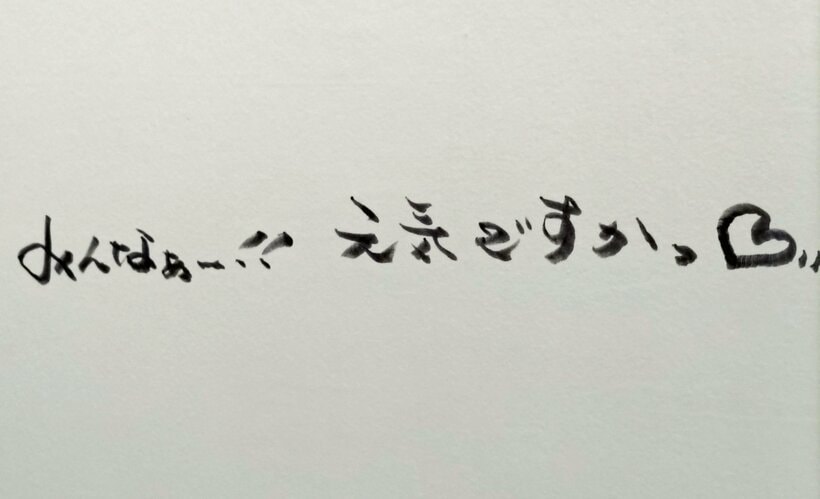 みんなぁー!! 元気ですかっ♡〃